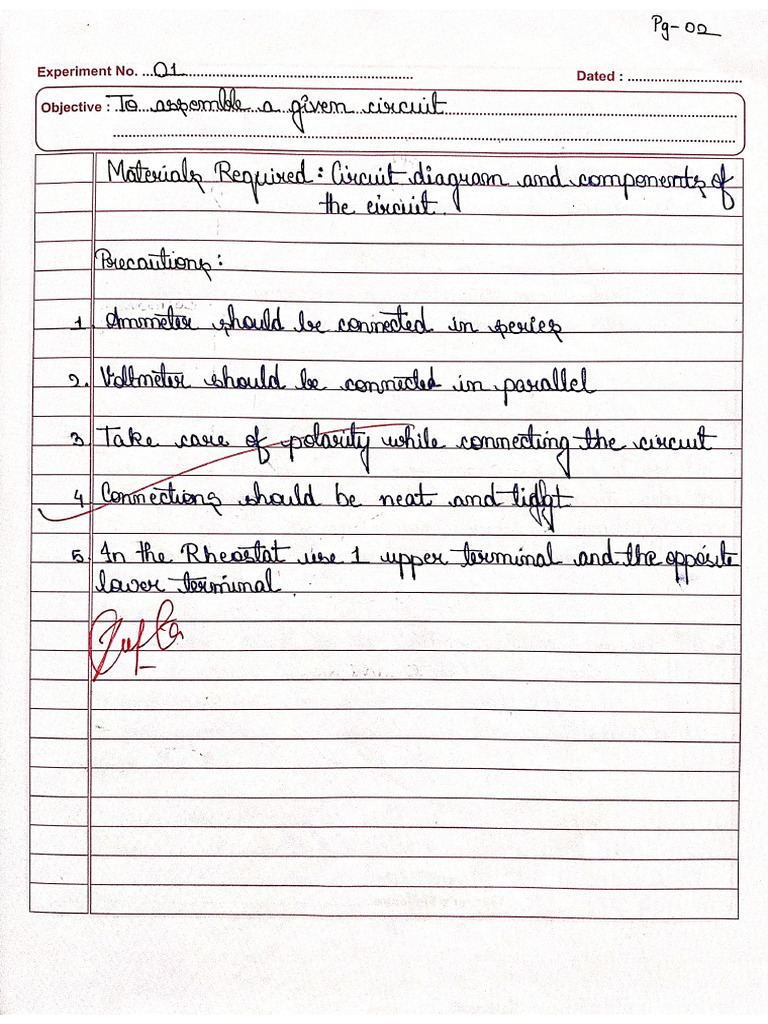 Pg-02
Experiment No. ...01
Dated :
Objective : To assemble a given circuit
Materials Required : Circuit diagram and components of
the circuit.
Precautions :
1. Ammeter should be connected in series
2. Voltmeter should be connected in parallel
3. Take care of polarity while connecting the circuit
4. Connections should be neat and tight
5. In the Rheostat use 1 upper terminal and the opposite
lower terminal.